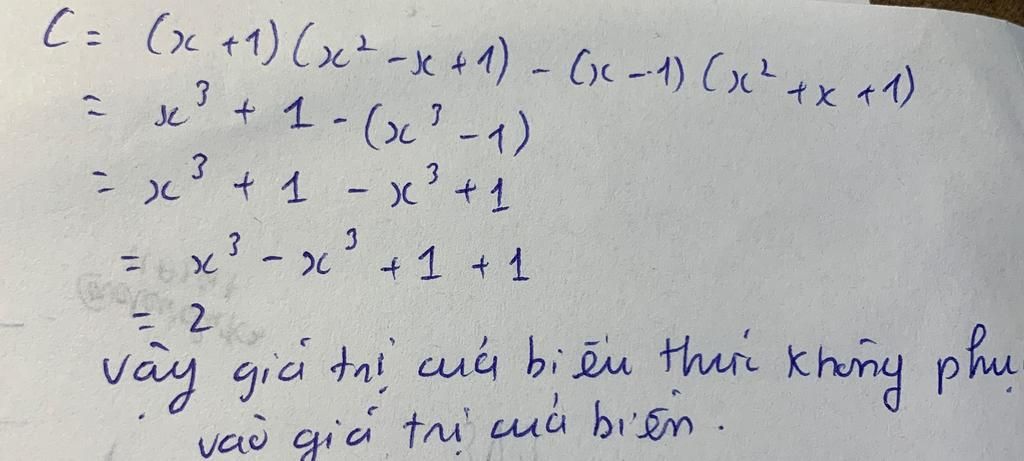 C = (x + 1)(x² - x + 1) - (x - 1)(x² + x + 1)
= x³ + 1 - (x³ - 1)
= x³ + 1 - x³ + 1
= x³ - x³ + 1 + 1
= 2
vậy giá trị của biểu thức không phụ
vào giá trị của biến.